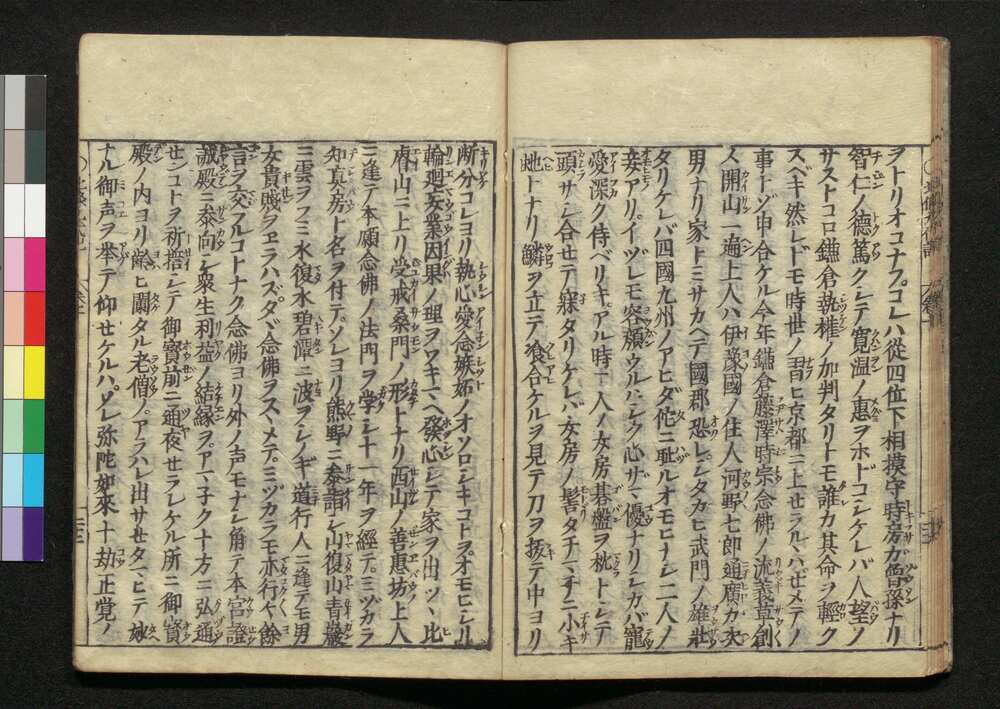 ヲトリオコナフコレハ從四位下相摸守時房カ曾孫ナリ
智仁ノ德篤クシテ寛温ノ惠ヲホドコシケレバ人望ノ
サストコロ鎌倉執權ノ加判タリトモ誰カ其命ヲ輕ク
スベキ然レドモ時世ノ習ヒ京都ニ上セラルヽハセメテノ
事トゾ申合ケル今年鎌倉藤澤時宗念佛ノ流義草創
ス開山一遍上人ハ伊豫國ノ住人河野七郎通廣カ次
男ナリ家トミサカヘテ國郡恐レシタカヒ武門ノ雄壯
タリケレバ四國九州ノアヒダ佗ニ耻ルオモヒナシ二人ノ
妾アリイヅレモ容顔ウルハシク心サマ優ナリシカバ寵
愛深ク侍ベリキアル時二人ノ女房碁盤ヲ枕トシテ
頭サシ合セテ寐タリケレバ女房ノ髻タチマチニ小キ
虵トナリ鱗ヲ立テ喰合ケルヲ見テ刀ヲ拔テ中ヨリ
断分コレヨリ執心愛念嫉妬ノオソロシキコトヲオモヒシリ
輪廻妄業因果ノ理ヲワキマヘ發心シテ家ヲ出ツヽ比
睿山ニ上リ受戒桑門ノ形トナリ西山ノ善惠坊上人
ニ逢テ本願念佛ノ法門ヲ学シ十一年ヲ經テミヅカラ
知真房ト名ヲ付テソレヨリ熊野ニ参詣シ山復山青巖
ニ雲ヲフミ水復水碧潭ニ波ヲシノギ道行人ニ逢テモ男
女貴賤ヲエラハズタヾ念佛ヲスヽメテミヅカラモ亦行ヤ餘
言ヲ交フルコトナク念佛ヨリ外ノ声モナシ角テ本宮證
誠殿ニ泰向シ衆生利益ノ結縁ヲアマ子ク十方ニ弘通
センコトヲ祈誓シテ御寳前ニ通夜セラレケル所ニ御寳
殿ノ内ヨリ齢ヒ闌タル老僧ノアラハレ出サセタマヒテ妙
ナル御声ヲ挙テ仰セケルハソレ弥陀如來十劫正覚ノ